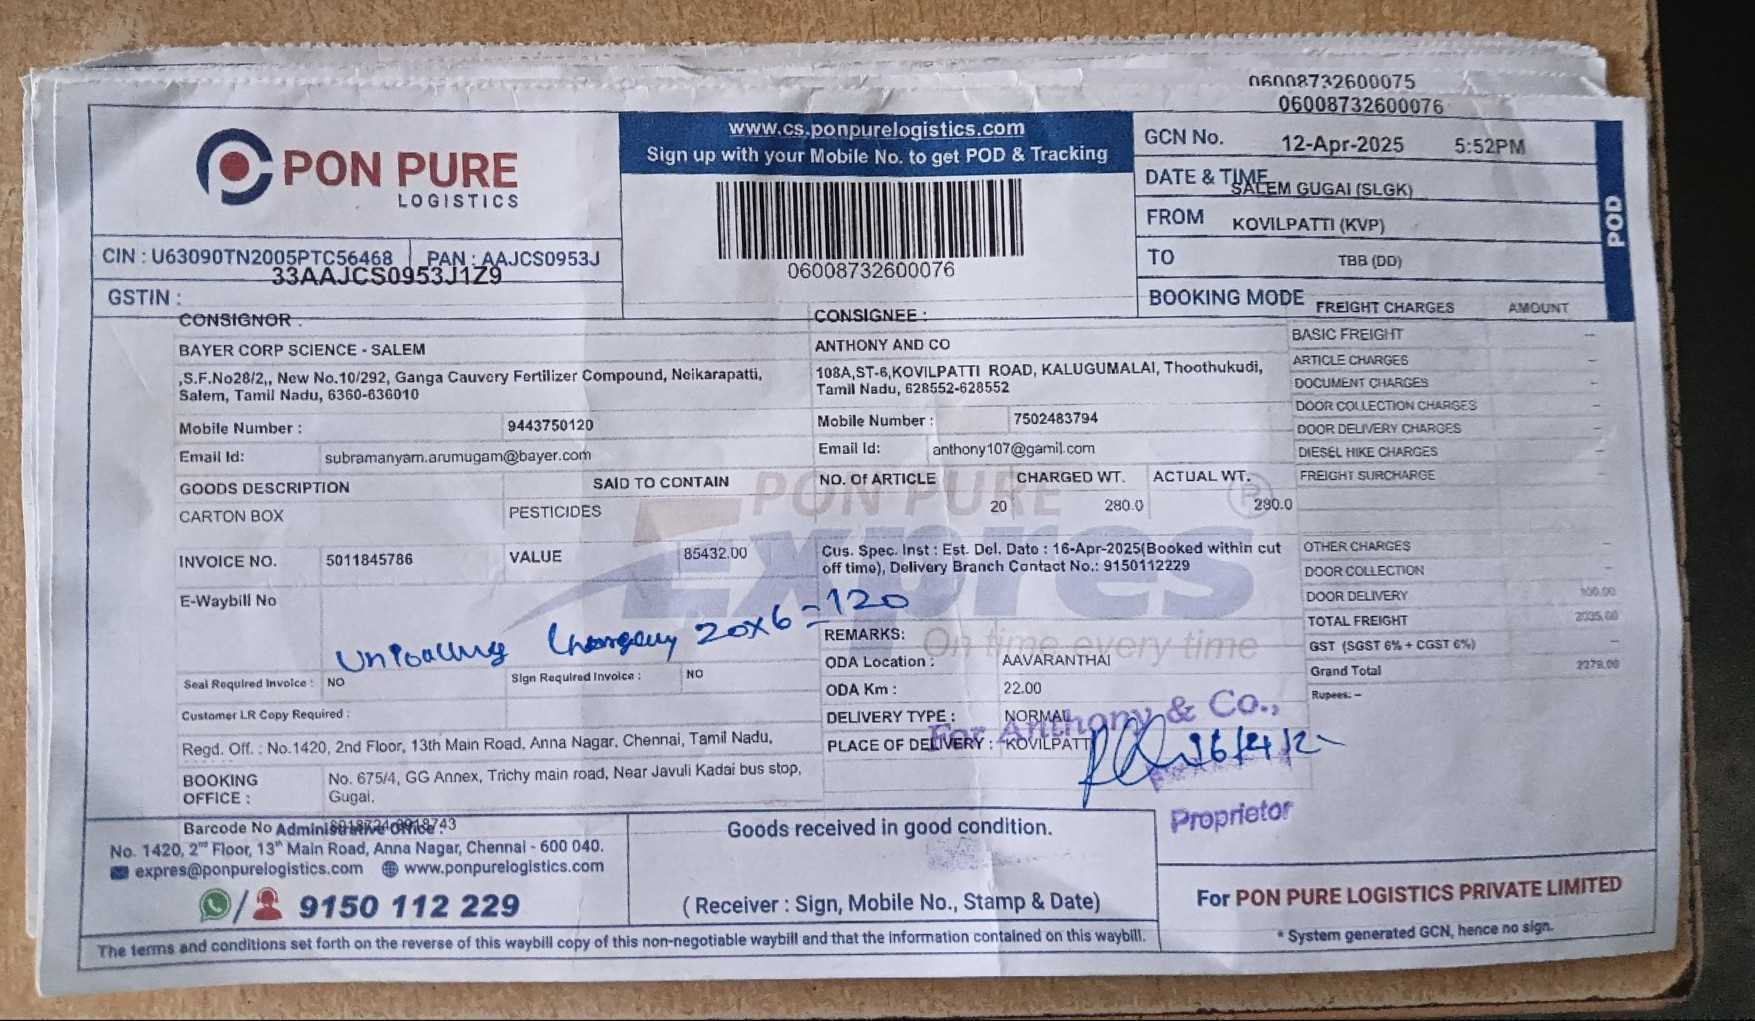 06008732600075
06008732600076
PON PURE
LOGISTICS
www.cs.ponpurelogistics.com
Sign up with your Mobile No. to get POD & Tracking
06008732600076
GCN No.
12-Apr-2025 5:52PM
DATE & TIME
SALEM GUGAI (SLGK)
FROM
KOVILPATTI (KVP)
TO
TBB (DD)
BOOKING MODE
POD
CIN : U63090TN2005PTC56468
PAN : AAJCS0953J
33AAJCS0953J1Z9
GSTIN :
CONSIGNOR :
BAYER CORP SCIENCE - SALEM
,S.F.No28/2,, New No.10/292, Ganga Cauvery Fertilizer Compound, Neikarapatti,
Salem, Tamil Nadu, 6360-636010
Mobile Number : 9443750120
Email Id: subramanyam.arumugam@bayer.com
GOODS DESCRIPTION SAID TO CONTAIN
CARTON BOX PESTICIDES
INVOICE NO. 5011845786 VALUE 85432.00
E-Waybill No
Unloading 20x6=120
Seal Required Invoice : NO Sign Required Invoice : NO
Customer LR Copy Required :
Regd. Off. : No.1420, 2nd Floor, 13th Main Road, Anna Nagar, Chennai, Tamil Nadu,
BOOKING OFFICE : No. 675/4, GG Annex, Trichy main road, Near Javuli Kadai bus stop,
Gugai,
CONSIGNEE :
ANTHONY AND CO
108A,ST-6,KOVILPATTI ROAD, KALUGUMALAI, Thoothukudi,
Tamil Nadu, 628552-628552
Mobile Number : 7502483794
Email Id: anthony107@gamil.com
NO. Of ARTICLE CHARGED WT. ACTUAL WT.
20 280.0 280.0
PON PURE
Expres
On time every time
Cus. Spec. Inst : Est. Del. Date : 16-Apr-2025(Booked within cut
off time), Delivery Branch Contact No.: 9150112229
REMARKS:
ODA Location : AAVARANTHAI
ODA Km : 22.00
DELIVERY TYPE : NORMAL
PLACE OF DELIVERY : KOVILPATTI
For Anthony & Co.,
Proprietor
FREIGHT CHARGES AMOUNT
BASIC FREIGHT –
ARTICLE CHARGES
DOCUMENT CHARGES –
DOOR COLLECTION CHARGES –
DOOR DELIVERY CHARGES –
DIESEL HIKE CHARGES –
FREIGHT SURCHARGE –
OTHER CHARGES –
DOOR COLLECTION –
DOOR DELIVERY
TOTAL FREIGHT 2035.00
GST (SGST 6% + CGST 6%) –
Grand Total 2279.00
Rupees: –
Barcode No
Administrative Office :
No. 1420, 2nd Floor, 13th Main Road, Anna Nagar, Chennai - 600 040.
expres@ponpurelogistics.com www.ponpurelogistics.com
9150 112 229
Goods received in good condition.
( Receiver : Sign, Mobile No., Stamp & Date)
For PON PURE LOGISTICS PRIVATE LIMITED
* System generated GCN, hence no sign.
The terms and conditions set forth on the reverse of this waybill copy of this non-negotiable waybill and that the information contained on this waybill.